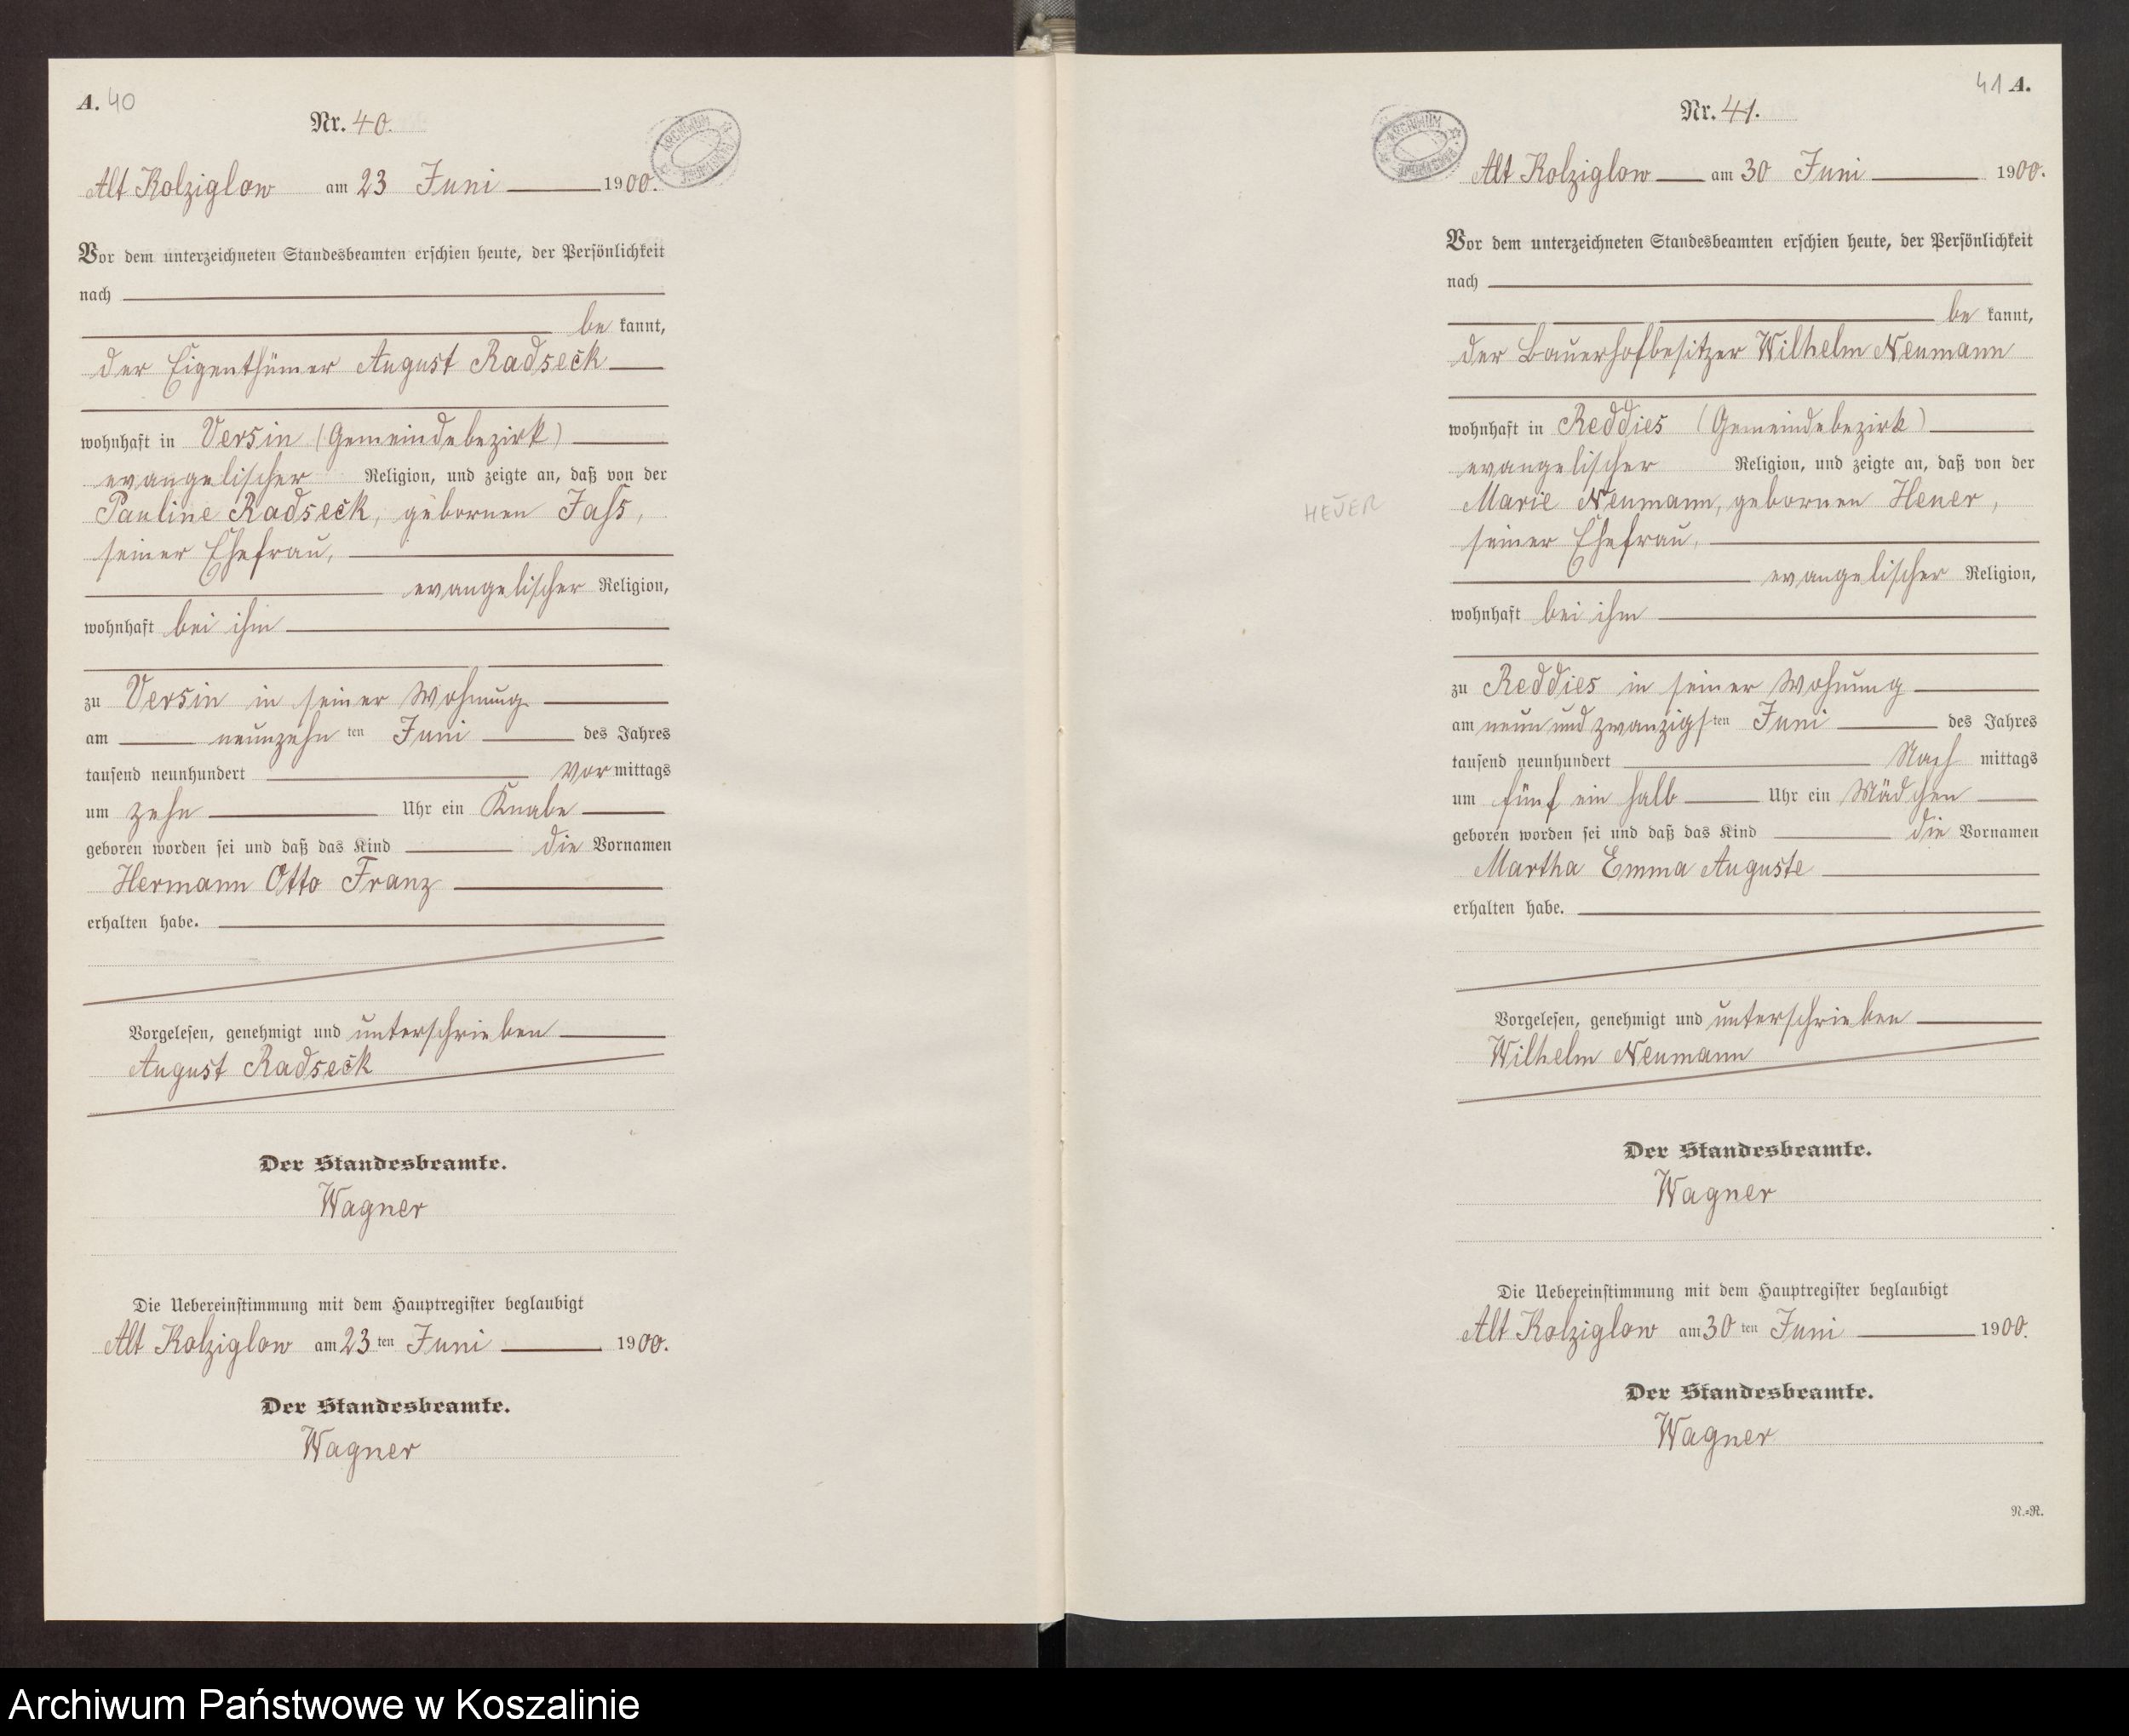 A. 40
Nr. 40.
ARCHIWUM
Alt Kolziglow am 23 Juni 1900.
Vor dem unterzeichneten Standesbeamten erschien heute, der Persönlichkeit
nach
be kannt,
der Eigenthümer August Radseck
wohnhaft in Versin (Gemeindebezirk)
evangelischer Religion, und zeigte an, daß von der
Pauline Radseck, gebornen Jass,
seiner Ehefrau,
evangelischer Religion,
wohnhaft bei ihm
zu Versin in seiner Wohnung
am neunzehn ten Juni des Jahres
tausend neunhundert Vor mittags
um zehn Uhr ein Knabe
geboren worden sei und daß das Kind die Vornamen
Hermann Otto Franz
erhalten habe.
Vorgelesen, genehmigt und unterschrieben
August Radseck
Der Standesbeamte.
Wagner
Die Uebereinstimmung mit dem Hauptregister beglaubigt
Alt Kolziglow am 23 ten Juni 1900.
Der Standesbeamte.
Wagner
41 A.
Nr. 41.
ARCHIWUM
Alt Kolziglow am 30 Juni 1900.
Vor dem unterzeichneten Standesbeamten erschien heute, der Persönlichkeit
nach
be kannt,
der Bauerhofbesitzer Wilhelm Neumann
wohnhaft in Reddies (Gemeindebezirk)
evangelischer Religion, und zeigte an, daß von der
Marie Neumann, gebornen Heuer,
HEUER
seiner Ehefrau,
evangelischer Religion,
wohnhaft bei ihm
zu Reddies in seiner Wohnung
am neun und zwanzigs ten Juni des Jahres
tausend neunhundert Nach mittags
um fünf ein halb Uhr ein Mädchen
geboren worden sei und daß das Kind die Vornamen
Martha Emma Auguste
erhalten habe.
Vorgelesen, genehmigt und unterschrieben
Wilhelm Neumann
Der Standesbeamte.
Wagner
Die Uebereinstimmung mit dem Hauptregister beglaubigt
Alt Kolziglow am 30 ten Juni 1900.
Der Standesbeamte.
Wagner
N.=R.
Archiwum Państwowe w Koszalinie